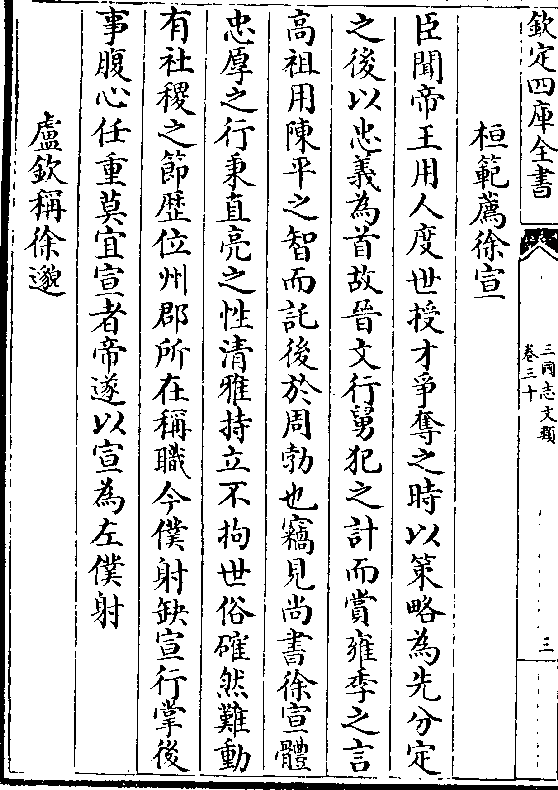 欽定四庫全書
三國志文類
卷三十
三
桓範薦徐宣
臣聞帝王用人度世授才爭奪之時以策略為先分定
之後以忠義為首故晉文行舅犯之計而賞雍季之言
高祖用陳平之智而託後於周勃也竊見尚書徐宣體
忠厚之行秉直亮之性清雅持立不拘世俗確然難動
有社稷之節歴位州郡所在稱職今僕射缺宣行掌後
事腹心任重莫宜宣者帝遂以宣為左僕射
盧欽稱徐邈